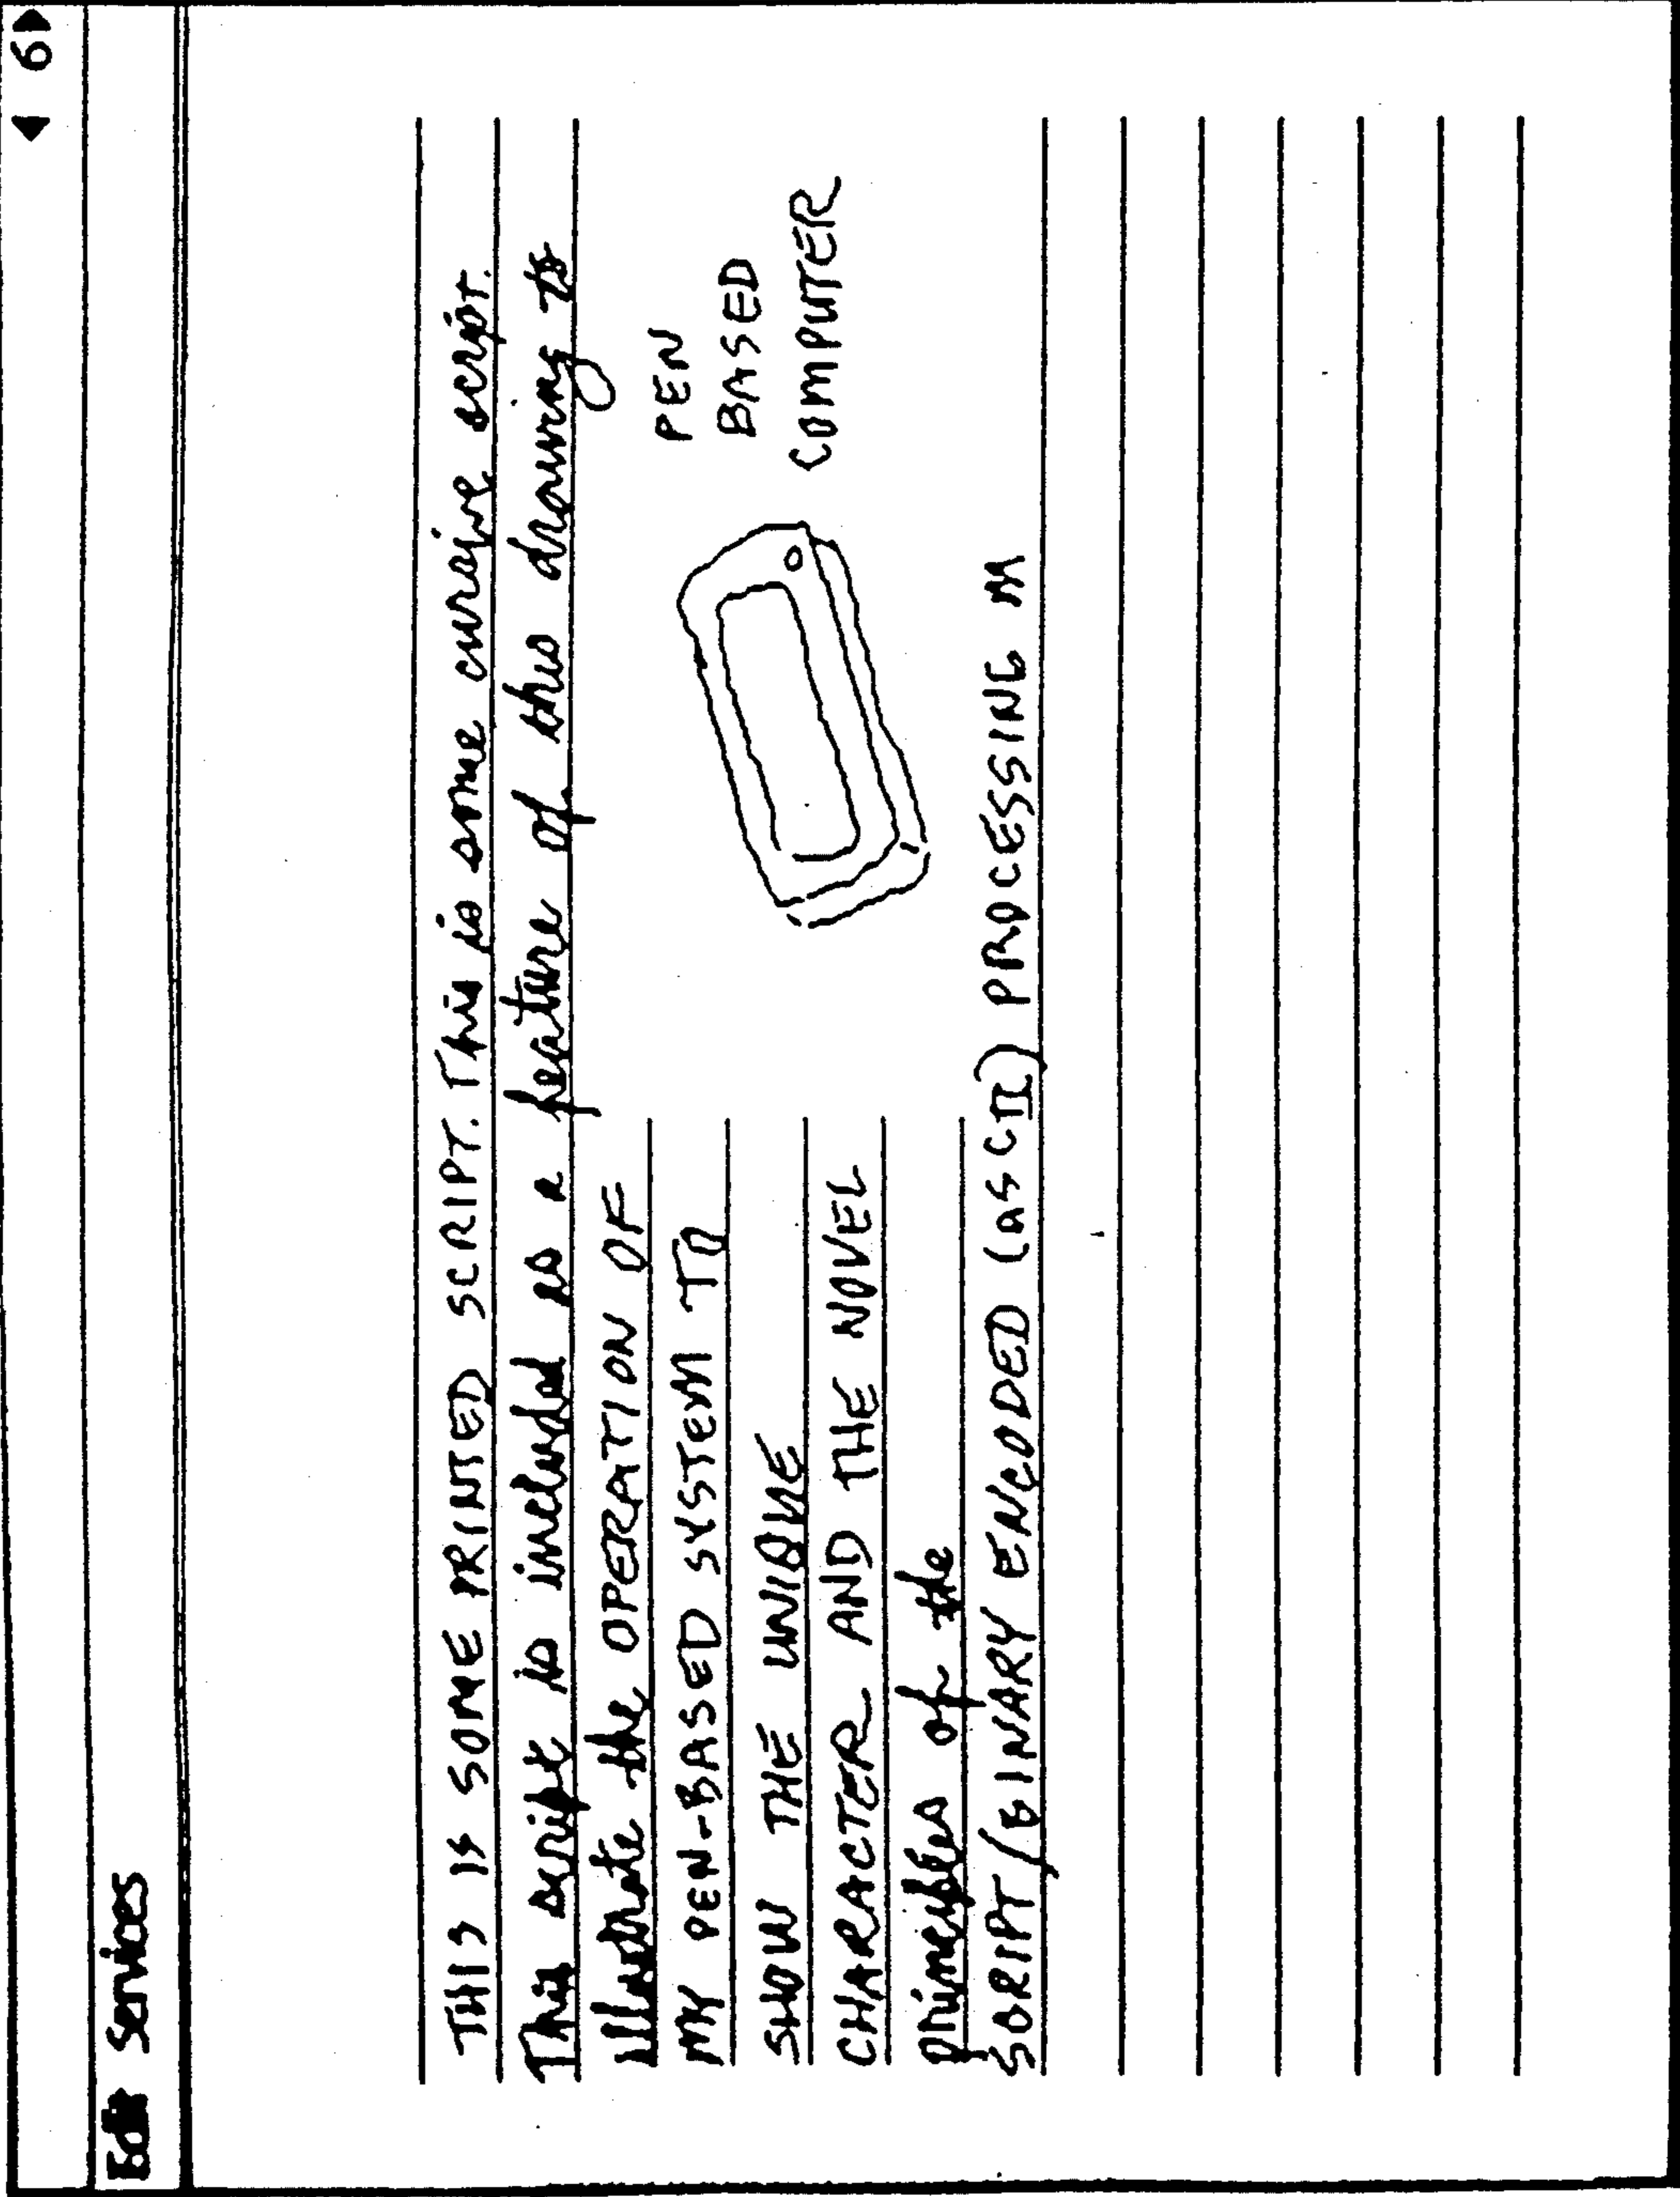 ◀ 6▶
Edit Services
THIS IS SOME PRINTED SCRIPT. This is some cursive script.
This script is included as a feature of this drawing to
illustrate the OPERATION OF
MY PEN-BASED SYSTEM TO
SHOW THE UNIQUE
CHARACTER AND THE NOVEL
principles of the
SCRIPT/BINARY ENCODED (ASCII) PROCESSING M
PEN
BASED
COMPUTER